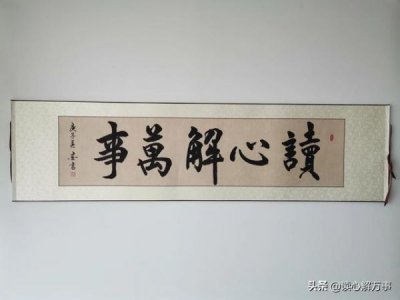 讀心解萬事
庚子夏 書
头条 @读心解万事